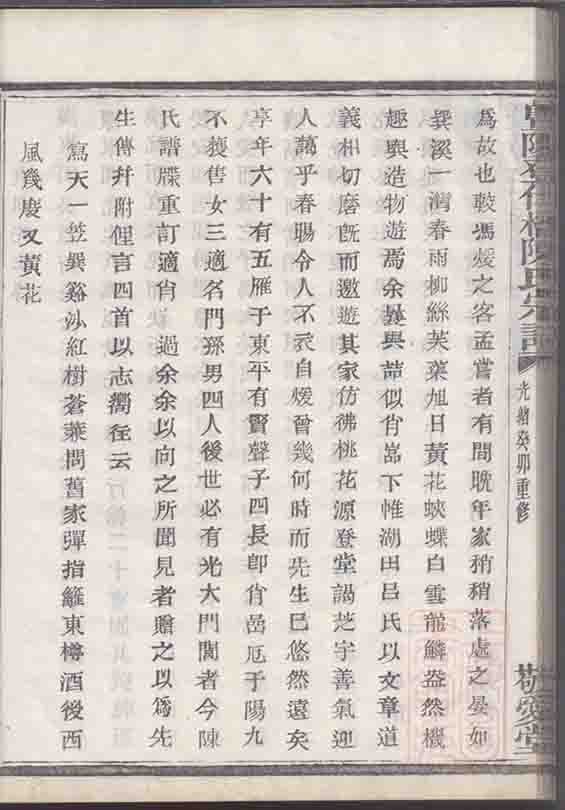 陽
陳氏宗譜
光緒癸卯重修
敬愛堂
爲故也歟馮煖之客孟嘗者有間晚年家稍稍落處之晏如
巽溪一灣春雨柳絲芙蕖旭日黃花蛺蝶白雲龍鱗盎然機
趣與造物遊焉余曩與喆似肖嵩下惟湖田呂氏以文章道
義相切磨旣而邀遊其家仿彿桃花源登堂謁芝宇善氣迎
人藹乎春暘令人不衣自煖曾幾何時而先生已悠然遠矣
享年六十有五雁于東平有賢聲子四長卽肖嵒厄于陽九
不獲售女三適名門孫男四人後世必有光大門閭者今陳
氏譜牒重訂適肖 過余余以向之所聞見者贈之以爲先
生傳幷附俚言四首以志獨徃云
寫天一笠巽谿沙紅樹蒼葉問舊家彈指籬東樽酒後西
風幾度又黃花